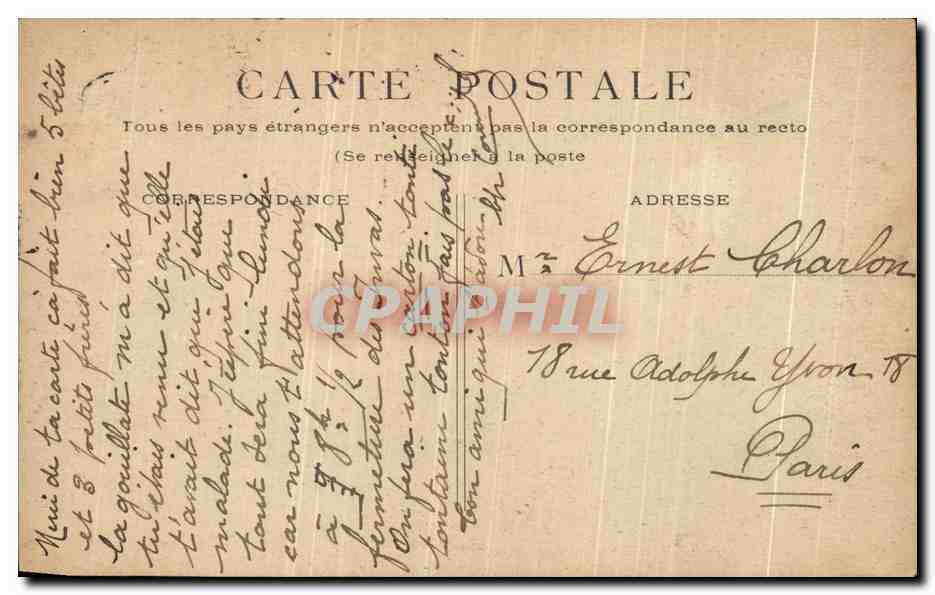 CARTE POSTALE
Tous les pays étrangers n'acceptent pas la correspondance au recto
(Se renseigner à la poste
CORRESPONDANCE
ADRESSE
Mr Ernest Charlon
18 rue Adolphe Yvon 18
Paris
Merci de ta carte ça fait bien 5 bêtes
et 3 petits frères
la gouillate m'a dit que
tu étais venu et qu'elle
t'avait dit que j'étais
malade. J'espère que
tout sera fini lundi
car nous t'attendons
à 8h 1/2 pour la
fermeture des
On fera un carton
tontaine tonton pas le
ton ami qui
CPAPHIL